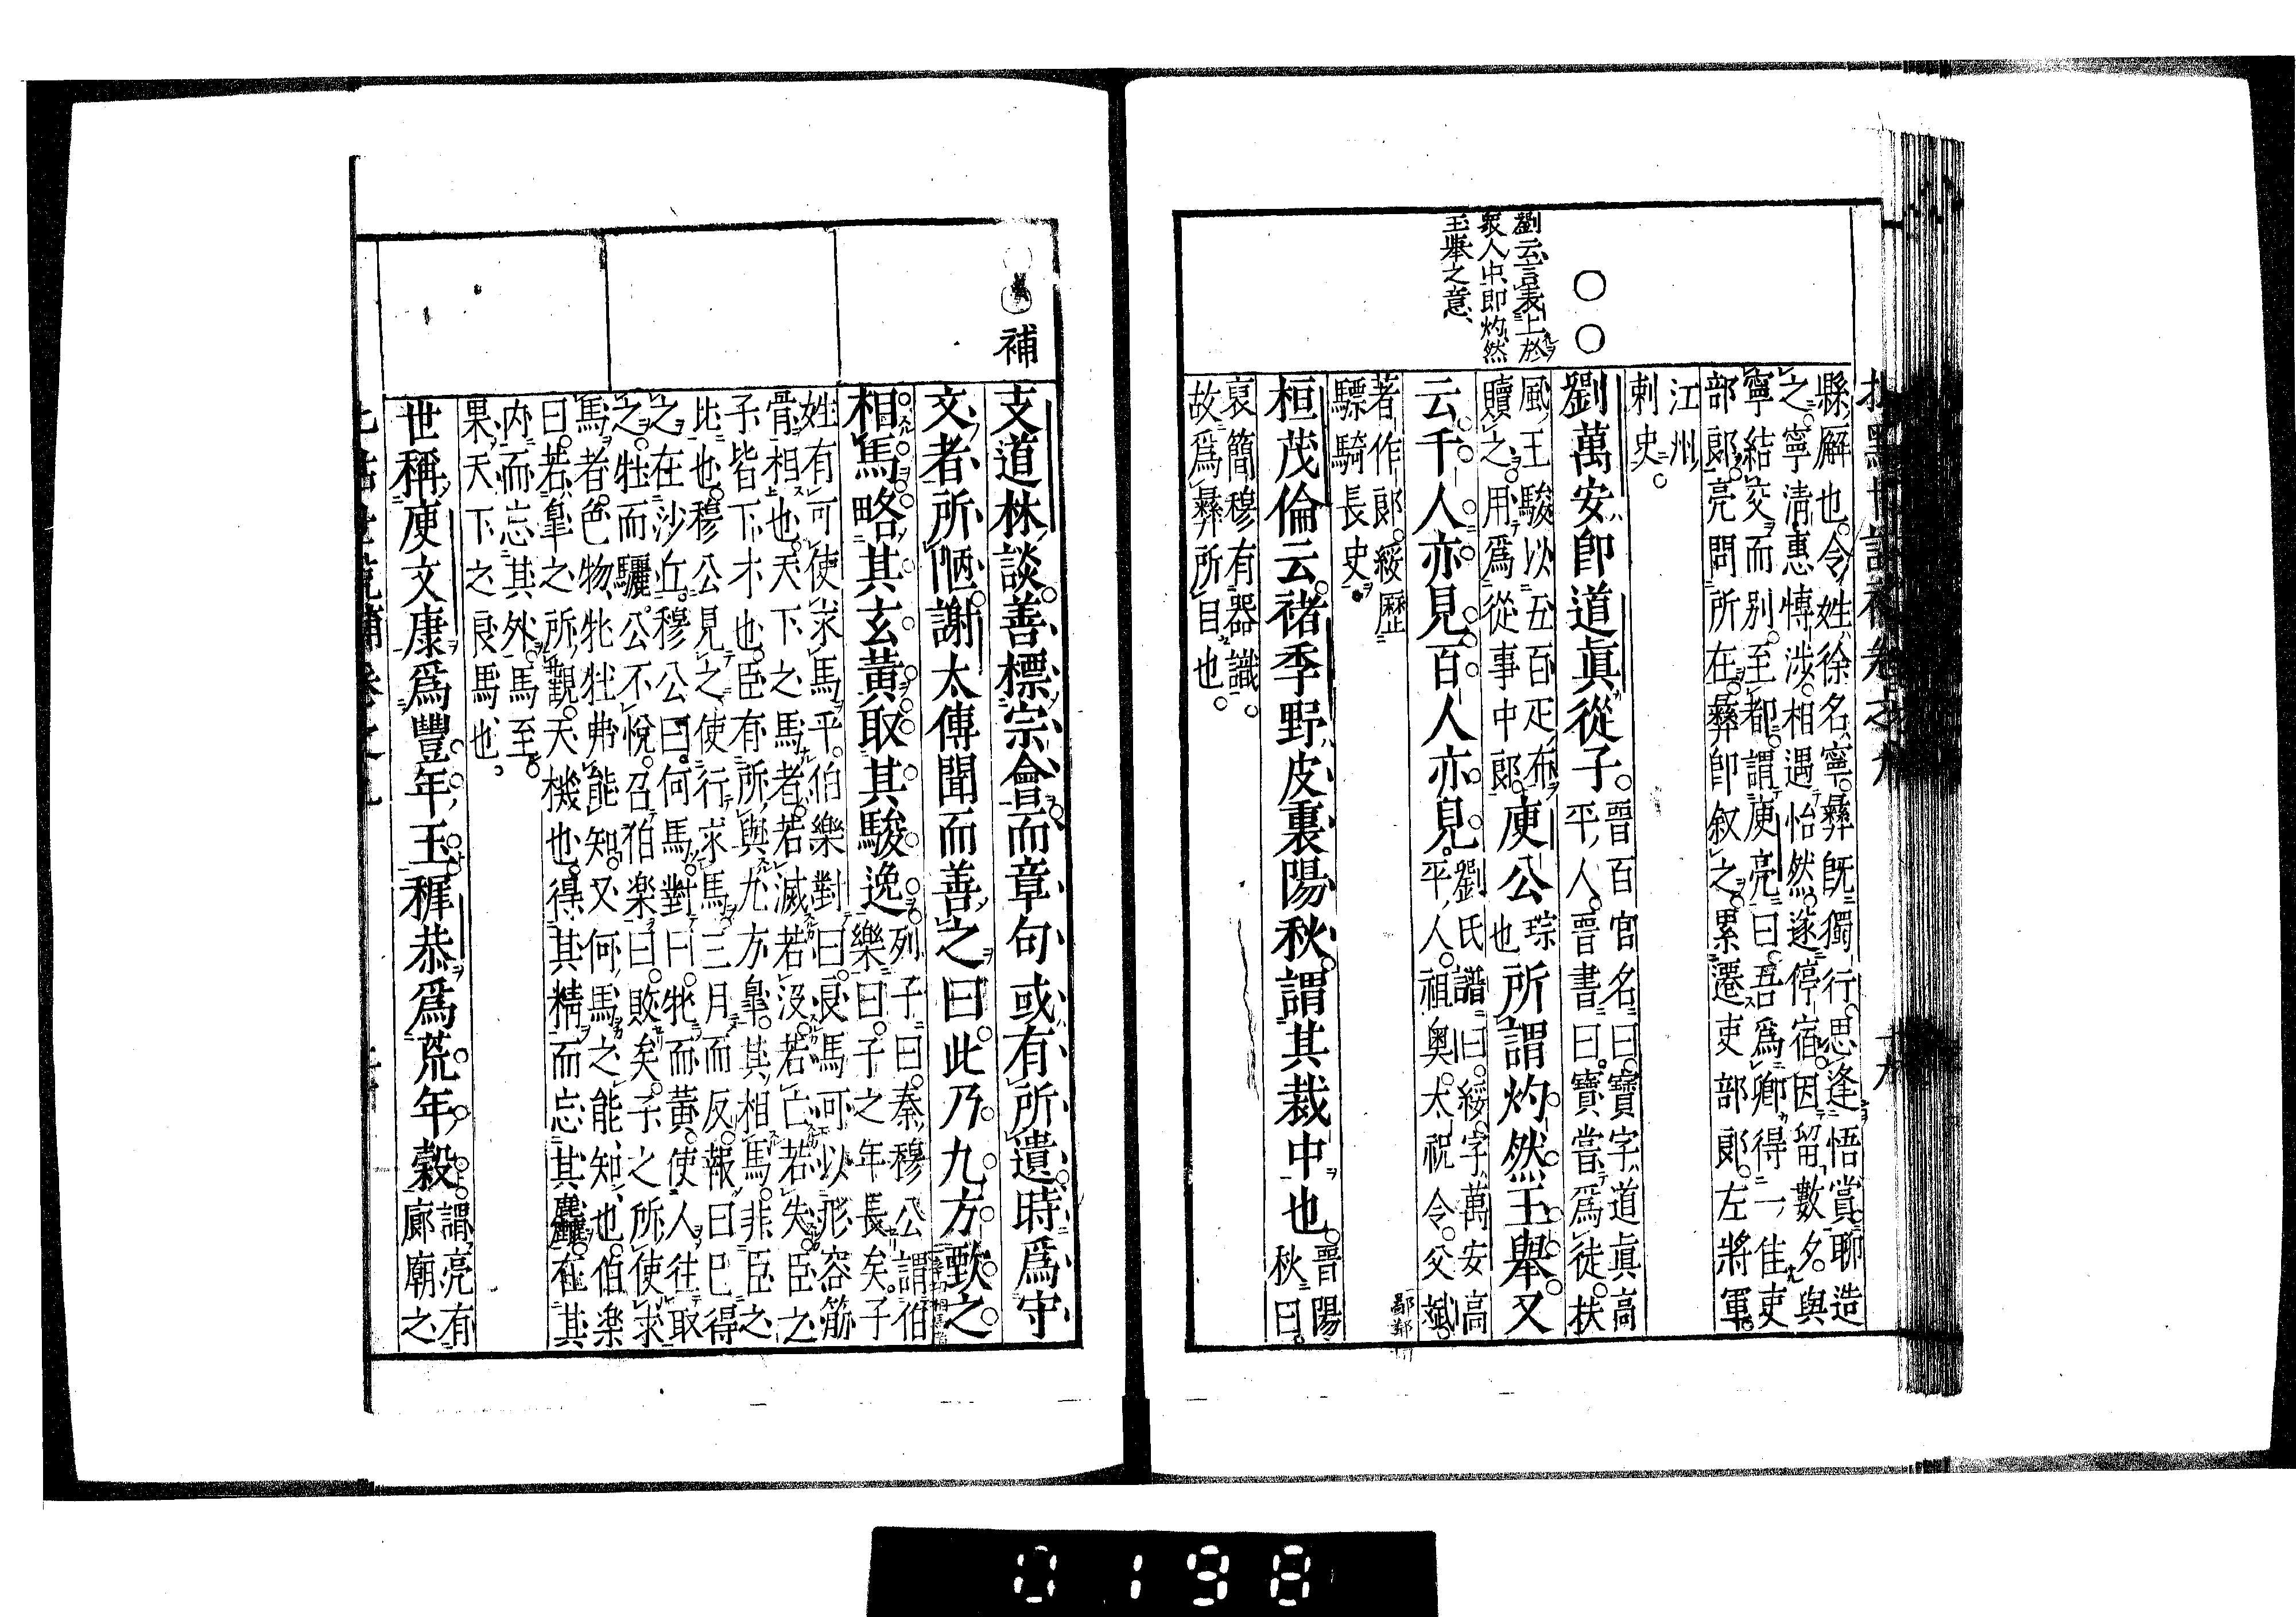 縣廨也令姓徐名寧彝既獨行思逢悟賞聊造
之寧清惠博渉相遇怡然遂停宿因留數夕與
寧結交而別至都謂庾亮曰吾爲卿得一佳吏
部郎亮問所在彝卽叙之累遷吏部郎左將軍
江州
刺史
○○
劉萬安卽道眞從子
晉百官名曰寶字道眞高
平人晉書曰寶嘗爲徒扶
風王駿以五百疋布
贖之用爲從事中郎
庾公
琮
也
所謂灼然玉舉又
劉云言表上於
衆人中即灼然
玉舉之意
云千人亦見百人亦見
劉氏譜曰綏字萬安高
平人祖奥太祝令父斌
著作郎綏歷
驃騎長史
桓茂倫云禇季野皮裏陽秋謂其裁中也
晉陽
秋曰
裒簡穆有器識
故爲彝所目也
補
支道林談善標宗會而章句或有所遺時爲守
文者所陋謝太傅聞而善之曰此乃九方歅之
相馬略其玄黃取其駿逸
列子曰秦穆公謂伯
樂曰子之年長矣子
姓有可使求馬乎伯樂對曰良馬可以形容筋
骨相也天下之馬者若滅若没若亡若失臣之
子皆下才也臣有所與九方臯其相馬非臣之
比也穆公見之使行求馬三月而反報曰已得
之在沙丘穆公曰何馬對曰牝而黃使人往取
之牡而驪公不悅召伯樂曰敗矣子之所使求
馬者色物牝牡弗能知又何馬之能知也伯楽
曰若臯之所觀天機也得其精而忘其麄在其
内而忘其外馬至
果天下之良馬也
世稱庾文康爲豐年玉稺恭爲荒年穀
謂亮有
廊廟之
0198